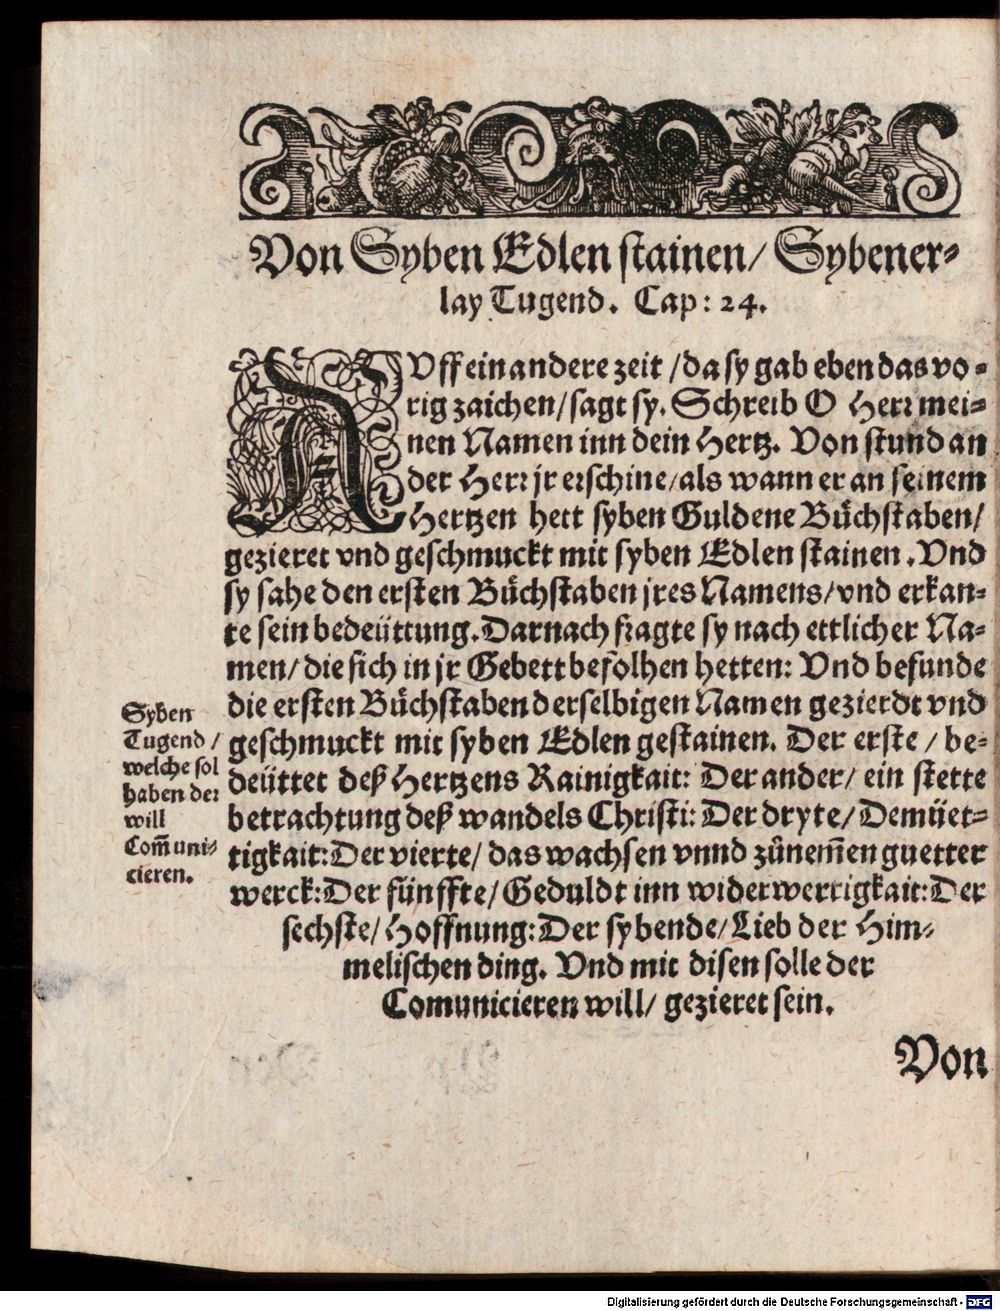 Von Syben Edlen stainen/ Sybener-
lay Tugend. Cap: 24.
AUff ein andere zeit / da sy gab eben das vo-
rig zaichen/ sagt sy. Schreib O Herr mei-
nen Namen inn dein Hertz. Von stund an
der Herr jr erschine/ als wann er an seinem
Hertzen hett syben Guldene Bůchstaben/
gezieret vnd geschmuckt mit syben Edlen stainen. Vnd
sy sahe den ersten Bůchstaben jres Namens/ vnd erkan-
te sein bedeüttung. Darnach fragte sy nach ettlicher Na-
men/ die sich in jr Gebett befolhen hetten: Vnd befunde
die ersten Bůchstaben derselbigen Namen gezierdt vnd
geschmuckt mit syben Edlen gestainen. Der erste / be-
deüttet deß Hertzens Rainigkait: Der ander/ ein stette
betrachtung deß wandels Christi: Der dryte/ Demüet-
tigkait: Der vierte/ das wachsen vnnd zůnem̃en guetter
werck: Der fünffte/ Geduldt inn widerwertigkait: Der
sechste/ Hoffnung: Der sybende/ Lieb der Him-
melischen ding. Vnd mit disen solle der
Comunicieren will/ gezieret sein.
Syben
Tugend /
welche sol
haben der
will
Com̃uni-
cieren.
Von
Digitalisierung gefördert durch die Deutsche Forschungsgemeinschaft - DFG